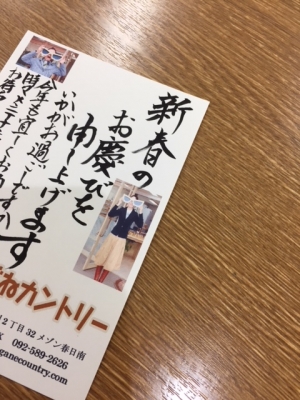 新春の
お慶びを
申し上げます
いかがお過ごしですか
今年も宜しくお願い
ねカントリー
2丁目32メゾン春日南
092-589-2626
ganecountry.com